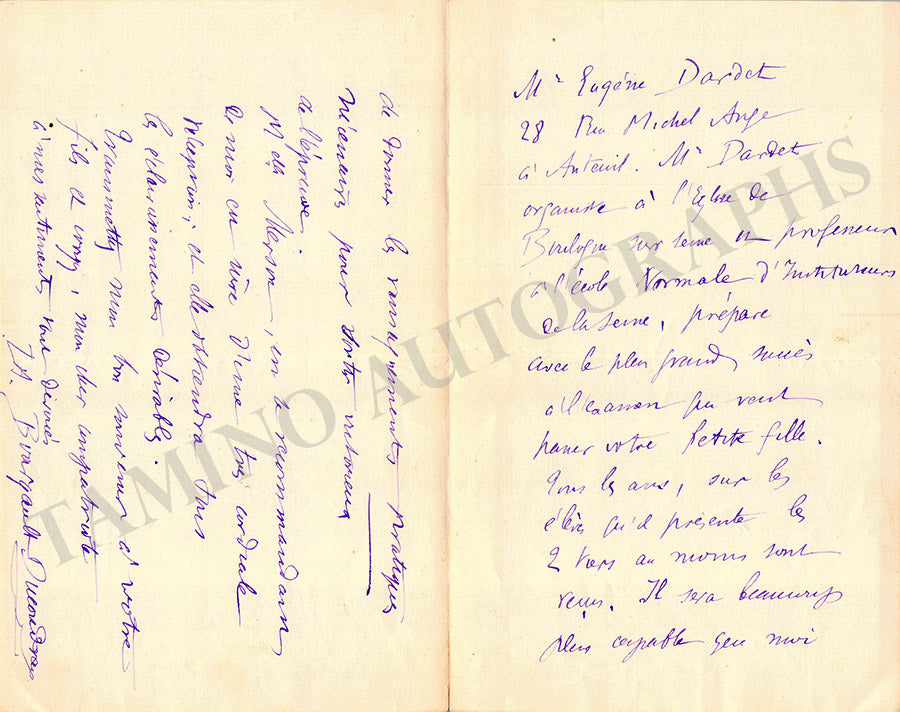 Mr Eugène Dardet
28 Rue Michel Ange
à Auteuil. Mr Dardet
organiste à l'Eglise de
Boulogne sur Seine et professeur
à l'école Normale d'Instituteurs
de la Seine, prépare
avec le plus grand succès
à l'examen que veut
passer votre Petite fille.
Tous les ans, sur les
élèves qu'il présente les
2 tiers au moins sont
reçus. Il sera beaucoup
plus capable que moi
de donner les renseignements pratiques
nécessaires pour sortir victorieux
de l'épreuve.
Melle Merson, en se recommandant
de moi en sera d'une très cordiale
réception; et elle obtiendra tous
les éclaircissements désirables.
Transmettez mon bon souvenir à votre
fils et croyez, mon cher compatriote
à mes sentiments tout dévoués
L.A. Bourgault Ducoudray
TAMINO AUTOGRAPHS